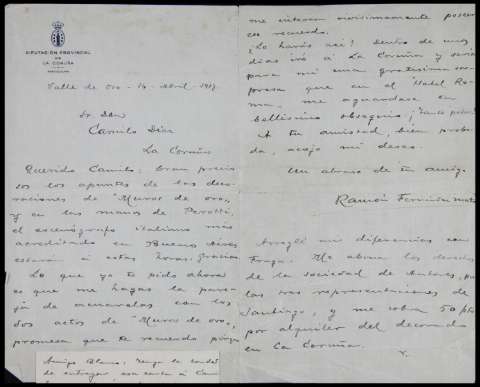 DIPUTACIÓN PROVINCIAL
DE
LA CORUÑA
PARTICULAR
Valle de oro - 14 - Abril - 1917
Sr. Don
Camilo Díaz
La Coruña
Querido Camilo: Eran precio
sos los apuntes de las deco
raciones de "Muros de oro",
y en las manos de Parotti,
el escenógrafo italiano más
acreditado en Buenos Aires
estarán a estas horas. Gracias
Lo que yo te pido ahora
es que me hagas la pare
ja de acuarelas con los
dos actos de "Muros de oro",
promesa que te recuerdo porque
Amigo Blanco: Tengo la bondad
de entregar esa carta a Cam
me interesa vivísimamente poseer
ese recuerdo.
¿Lo harás así? Dentro de unos
días iré a La Coruña y sería
para mí una gratísima sor
presa que en el Hotel Ro
ma, me aguardase tu
bellísimo obsequio.
A tu amistad, bien proba
da, acojo mi deseo.
Un abrazo de tu amigo
Ramón Fernández Mato
Arreglé mis diferencias con
Fraga. Me abona los derechos
de la sociedad de Autores, por
las tres representaciones de
Santiago, y me cobra 50 pts
por alquiler del decorado
en La Coruña.